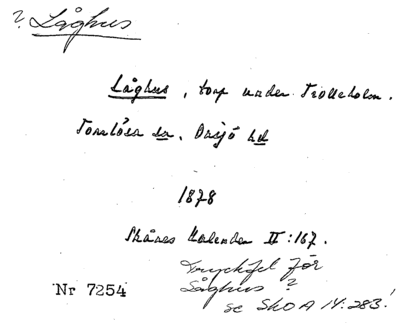 ? Låghus
Låghus, torp under Trolleholm.
Torrlösa sn, Onsjö hd
1878
Skånes Kalender II:167.
Tryckfel för
Såghus ?
Nr 7254
se SkOA 14:283!